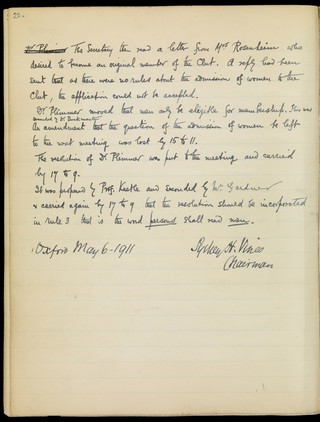 20.
The Secretary then read a letter from Mrs Rosenheim who
desired to become an original member of the Club. A reply had been
sent that as there were no rules about the admission of women to the
Club, the application could not be accepted.
Dr. Plimmer moved that men only be elegible for membership. This was
seconded by Dr
An amendment that the question of the admission of women be left
to the next meeting, was lost by 15 to 11.
The resolution of Dr Plimmer was put to the meeting and carried
by 17 to 9.
It was proposed by Prof. Kastle and seconded by W. Gardner
& carried again by 17 to 9 that the resolution should be incorporated
in rule 3 that is the word person shall read man.
Oxford May 6-1911
Sydney H. Vines
Chairman